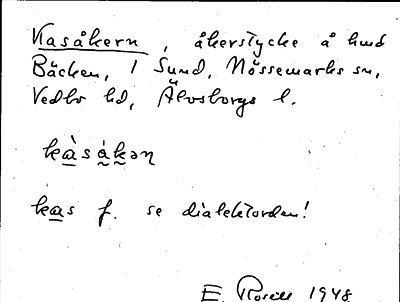 Kasåkern, åkerstycke å hmd
Bäcken, 1 Sund, Nössemarks sn,
Vedbo hd, Älvsborgs l.
kàsákən
kas f. se dialektorden!
E. Rosell 1948